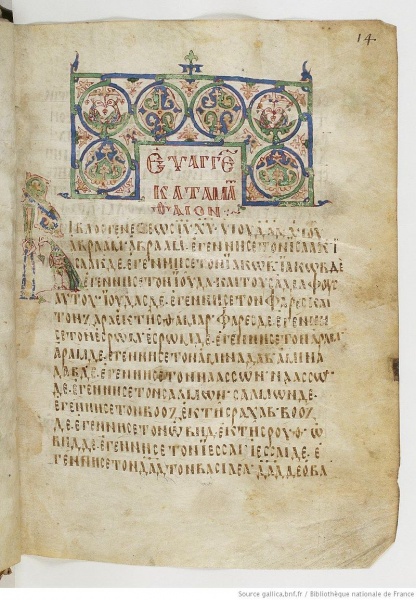 14
ΕΥΑΓΓΕ
ΚΑΤΑ ΜΑ
ΘΑΙΟΝ
ΒΙΒΛΟϹ ΓΕΝΕϹΕΩϹ ΙΥ ΧΥ ΥΙΟΥ ΔΑΔ ΥΙΟΥ
ΑΒΡΑΑΜ· ΑΒΡΑΑΜ ΕΓΕΝΝΗϹΕ ΤΟΝ ΙϹΑΑΚ· Ι
ϹΑΑΚ ΔΕ· ΕΓΕΝΝΗϹΕ ΤΟΝ ΙΑΚΩΒ· ΙΑΚΩΒ ΔΕ
ΕΓΕΝΝΗϹΕ ΤΟΝ ΙΟΥΔΑ· ΚΑΙ ΤΟΥϹ ΑΔΕΛΦΟΥϹ
ΑΥΤΟΥ· ΙΟΥΔΑϹ ΔΕ· ΕΓΕΝΝΗϹΕ ΤΟΝ ΦΑΡΕϹ ΚΑΙ
ΤΟΝ ΖΑΡΑ ΕΚ ΤΗϹ ΘΑΜΑΡ· ΦΑΡΕϹ ΔΕ· ΕΓΕΝΝΗ
ϹΕ ΤΟΝ ΕϹΡΩΜ· ΕϹΡΩΜ ΔΕ· ΕΓΕΝΝΗϹΕ ΤΟΝ ΑΡΑΜ
ΑΡΑΜ ΔΕ· ΕΓΕΝΝΗϹΕ ΤΟΝ ΑΜΙΝΑΔΑΒ· ΑΜΙΝΑ
ΔΑΒ ΔΕ· ΕΓΕΝΝΗϹΕ ΤΟΝ ΝΑΑϹϹΩΝ· ΝΑΑϹϹΩ
ΔΕ· ΕΓΕΝΝΗϹΕ ΤΟΝ ϹΑΛΜΩΝ· ϹΑΛΜΩΝ ΔΕ·
ΕΓΕΝΝΗϹΕ ΤΟΝ ΒΟΟΖ· ΕΚ ΤΗϹ ΡΑΧΑΒ· ΒΟΟΖ
ΔΕ· ΕΓΕΝΝΗϹΕ ΤΟΝ ΩΒΗΔ· ΕΚ ΤΗϹ ΡΟΥΘ· Ω
ΒΗΔ ΔΕ· ΕΓΕΝΝΗϹΕ ΤΟΝ ΙΕϹϹΑΙ· ΙΕϹϹΑΙ ΔΕ· Ε
ΓΕΝΝΗϹΕ ΤΟΝ ΔΑΔ ΤΟΝ ΒΑϹΙΛΕΑ· ΔΑΔ ΔΕ Ο ΒΑ
Source gallica.bnf.fr / Bibliothèque nationale de France